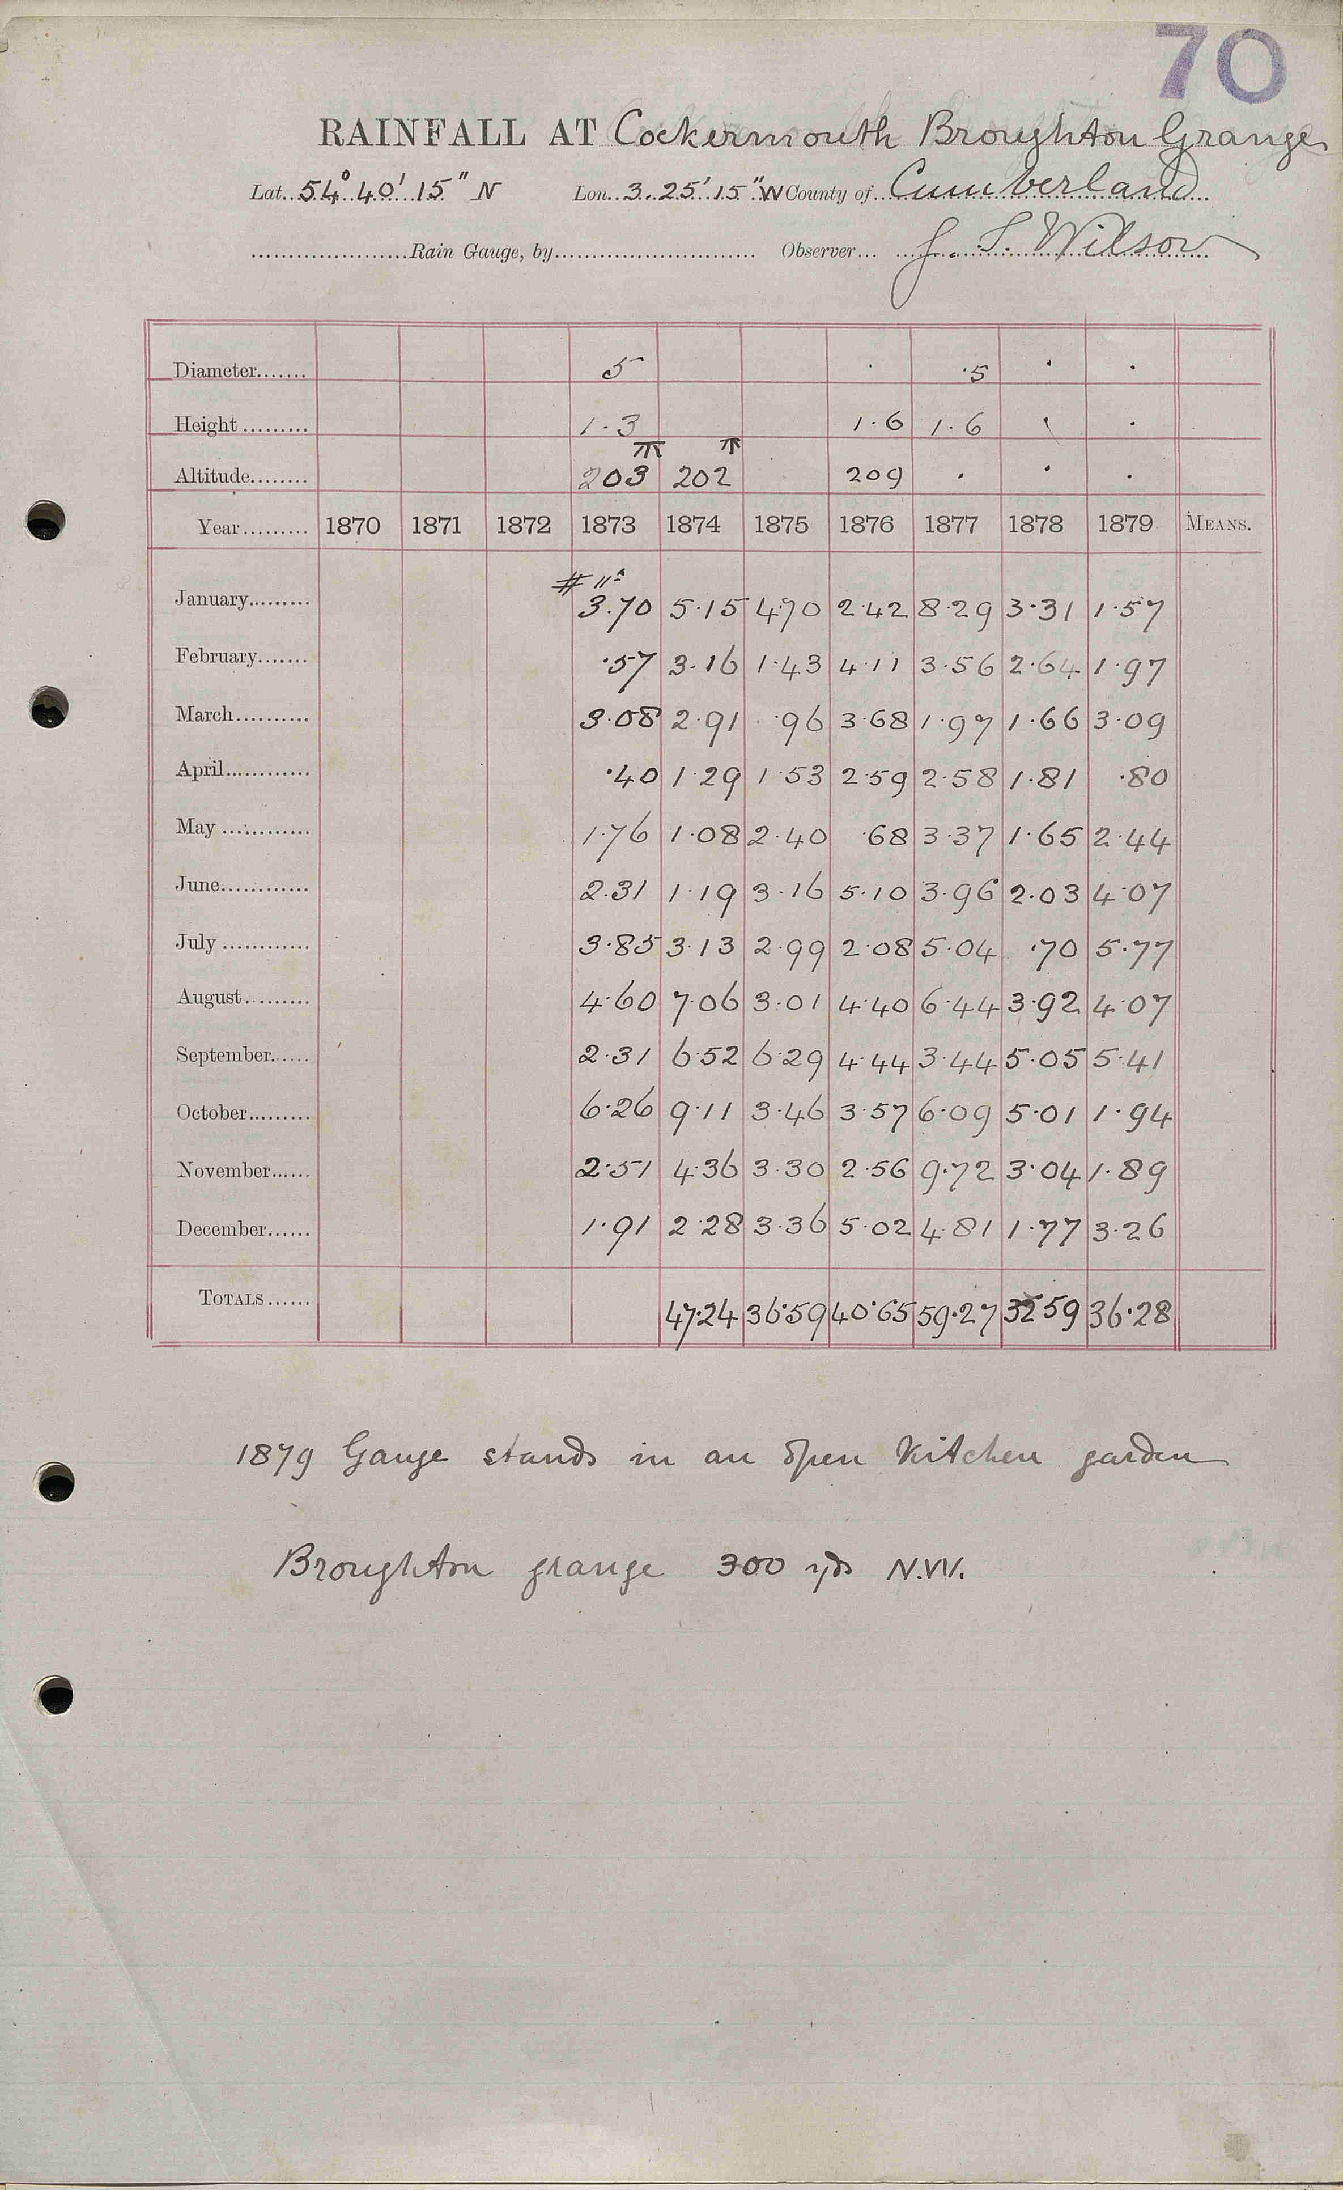 70
RAINFALL AT Cockermouth Broughton Grange
Lat. 54° 40' 15" N Lon. 3. 25' 15" W County of Cumberland
Rain Gauge, by Observer J. S. Wilson
Diameter 5 · ·5 · ·
Height 1·3 1·6 1·6 · ·
Altitude 203 202 209 · · ·
Year 1870 1871 1872 1873 1874 1875 1876 1877 1878 1879 MEANS.
January 3.70 5·15 4·70 2·42 8·29 3·31 1·57
February ·57 3·16 1·43 4·11 3·56 2·64 1·97
March 3·08 2·91 ·96 3·68 1·97 1·66 3·09
April ·40 1·29 1·53 2·59 2·58 1·81 ·80
May 1·76 1·08 2·40 ·68 3·37 1·65 2·44
June 2·31 1·19 3·16 5·10 3·96 2·03 4·07
July 3·85 3·13 2·99 2·08 5·04 ·70 5·77
August 4·60 7·06 3·01 4·40 6·44 3·92 4·07
September 2·31 6·52 6·29 4·44 3·44 5·05 5·41
October 6·26 9·11 3·46 3·57 6·09 5·01 1·94
November 2·51 4·36 3·30 2·56 9·72 3·04 1·89
December 1·91 2·28 3·36 5·02 4·81 1·77 3·26
TOTALS 47·24 36·59 40·65 59·27 32 59 36·28
1879 Gauge stands in an open Kitchen garden
Broughton grange 300 yds N.W.